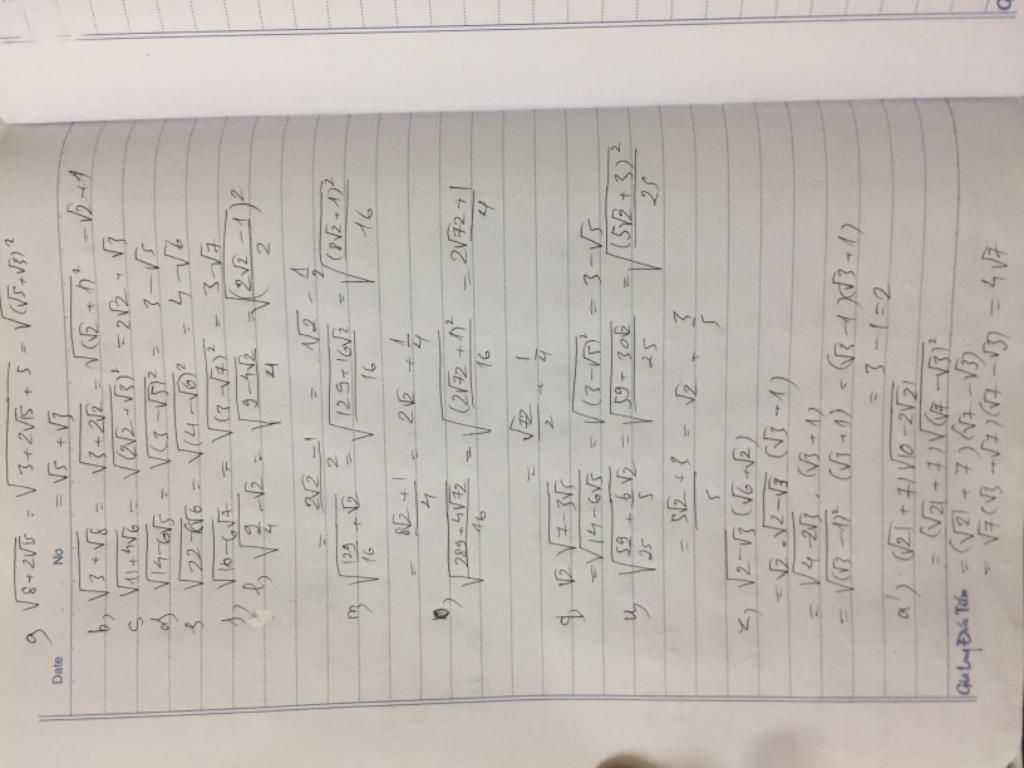 a) √(8+2√15) = √(3+2√15+5) = √((√5+√3)²)
Date No = √5+√3
b) √(3+√8) = √(3+2√2) = √((√2+1)²) = √2+1
c) √(11+4√6) = √((2√2+√3)²) = 2√2+√3
d) √(14-6√5) = √((3-√5)²) = 3-√5
√(22-8√6) = √((4-√6)²) = 4-√6
f) √(16-6√7) = √((3-√7)²) = 3-√7
√(9/4-√2) = √((9-4√2)/4) = √(((2√2-1)/2)²)
= (2√2-1)/2 = √2-1/2
√(129/16+√2) = √((129+16√2)/16) = √((8√2+1)²/16)
= (8√2+1)/4 = 2√2+1/4
√((289+4√72)/16) = √((2√72+1)²/16) = (2√72+1)/4
= √72/2+1/4
q) √2√(7-3√5)
= √(14-6√5) = √((3-√5)²) = 3-√5
√(59/25+6/5√2) = √((59+30√2)/25) = √((5√2+3)²/25)
= (5√2+3)/5 = √2+3/5
z) √(2-√3)(√6+√2)
= √2.√(2-√3)(√3+1)
= √(4-2√3).(√3+1)
= √((√3-1)²)(√3+1) = (√3-1)(√3+1)
= 3-1=2
a') (√21+7)√(10-2√21)
= (√21+7)√((√7-√3)²)
= (√21+7)(√7-√3)
= √7(√3+√7)(√7-√3) = 4√7